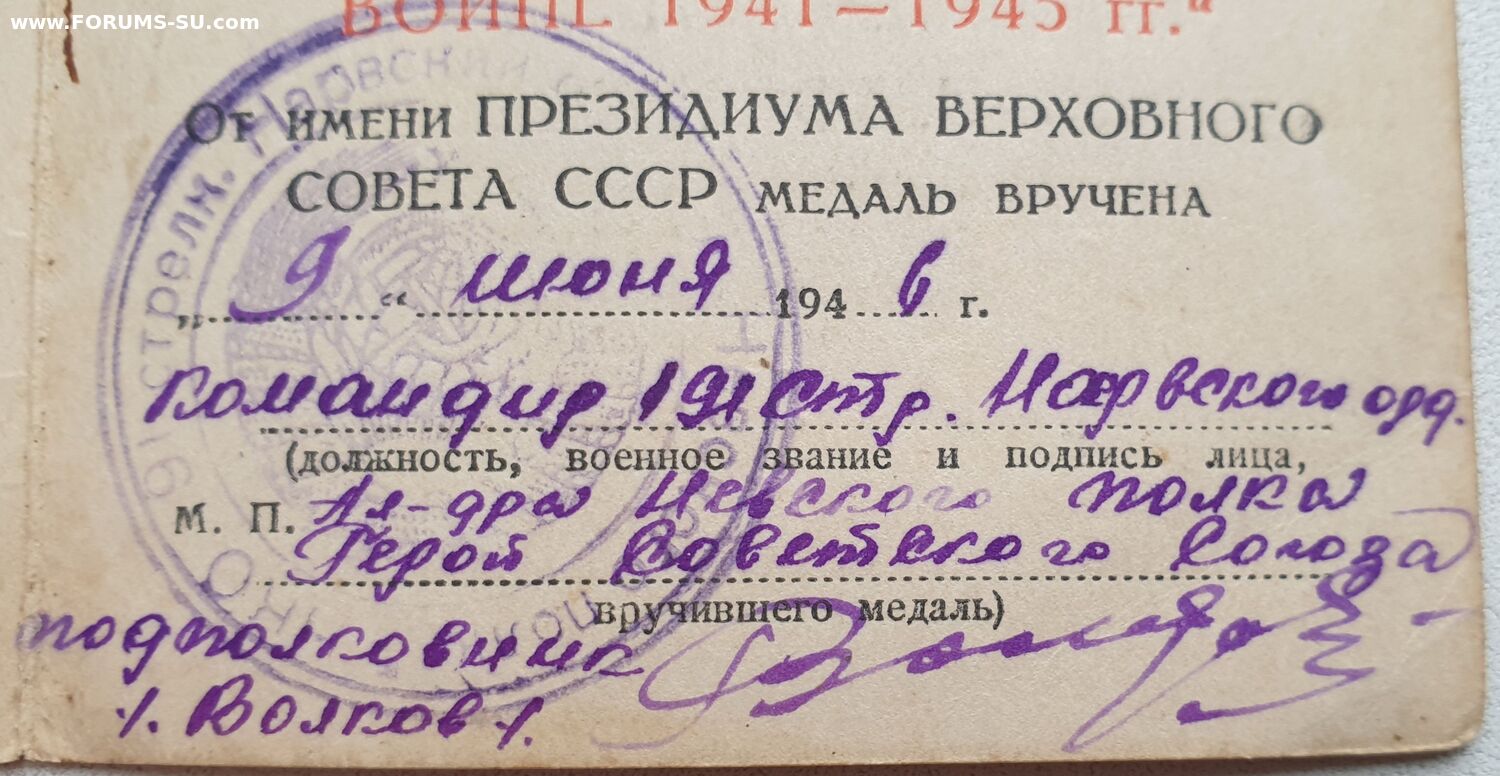 www.FORUMS-SU.com
ВОЙНЕ 1941—1945 гг."
От имени ПРЕЗИДИУМА ВЕРХОВНОГО
СОВЕТА СССР МЕДАЛЬ ВРУЧЕНА
„ 9 “ июня 1946 г.
Командир 191 стр. Нарвского орд.
(должность, военное звание и подпись лица,
М. П. Ал-дра Невского полка
Герой Советского Союза
вручившего медаль)
подполковник
/. Волков /.
191 стрелк. Нарвский